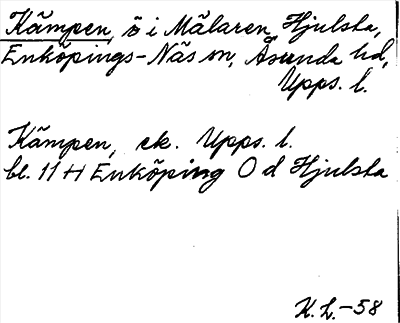 Kämpen, ö i Mälaren, Hjulsta,
Enköpings-Näs sn, Åsunda hd,
Upps. l.
Kämpen, ek. Upps. l.
bl. 11 H Enköping O d Hjulsta
K. L. -58